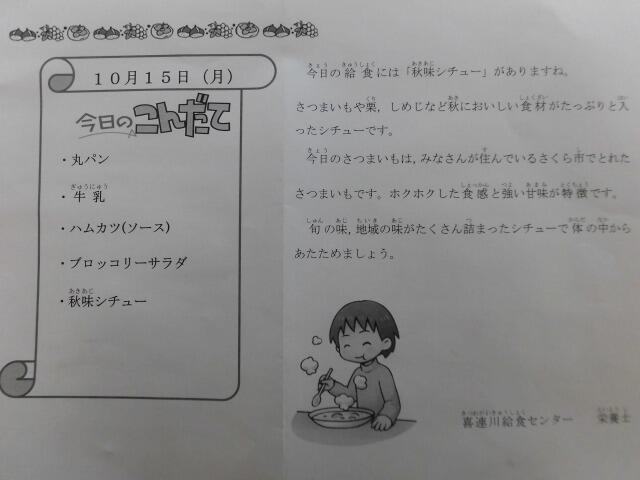 10月15日（月）
今日のこんだて
・丸パン
・牛乳
・ハムカツ(ソース)
・ブロッコリーサラダ
・秋味シチュー
今日の給食には「秋味シチュー」がありますね。
さつまいもや栗，しめじなど秋においしい食材がたっぷりと入
ったシチューです。
今日のさつまいもは，みなさんが住んでいるさくら市でとれた
さつまいもです。ホクホクした食感と強い甘味が特徴です。
旬の味，地域の味がたくさん詰まったシチューで体の中から
あたためましょう。
喜連川給食センター　栄養士